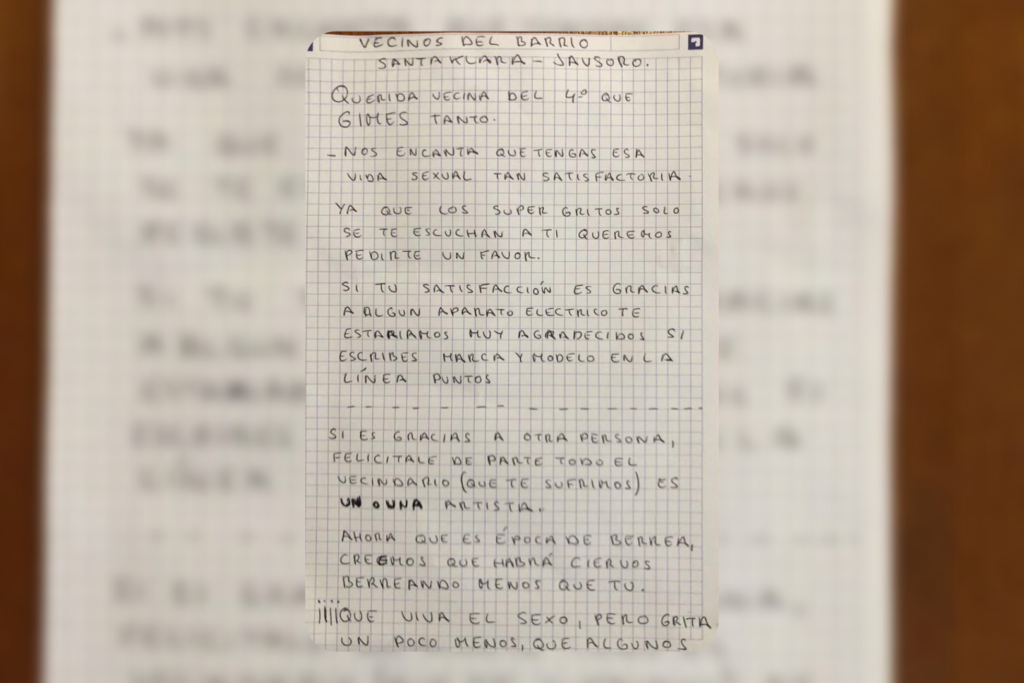 VECINOS DEL BARRIO
SANTAKLARA - JAUSORO.
QUERIDA VECINA DEL 4º QUE
GIMES TANTO.
- NOS ENCANTA QUE TENGAS ESA
VIDA SEXUAL TAN SATISFACTORIA.
YA QUE LOS SUPER GRITOS SOLO
SE TE ESCUCHAN A TI QUEREMOS
PEDIRTE UN FAVOR.
SI TU SATISFACCIÓN ES GRACIAS
A ALGUN APARATO ELECTRICO TE
ESTARIAMOS MUY AGRADECIDOS SI
ESCRIBES MARCA Y MODELO EN LA
LÍNEA PUNTOS
SI ES GRACIAS A OTRA PERSONA,
FELICITALE DE PARTE TODO EL
VECINDARIO (QUE TE SUFRIMOS) ES
UN O UNA ARTISTA.
AHORA QUE ES ÉPOCA DE BERREA,
CREEMOS QUE HABRÁ CIERVOS
BERREANDO MENOS QUE TU.
¡¡¡¡QUE VIVA EL SEXO, PERO GRITA
UN POCO MENOS, QUE ALGUNOS